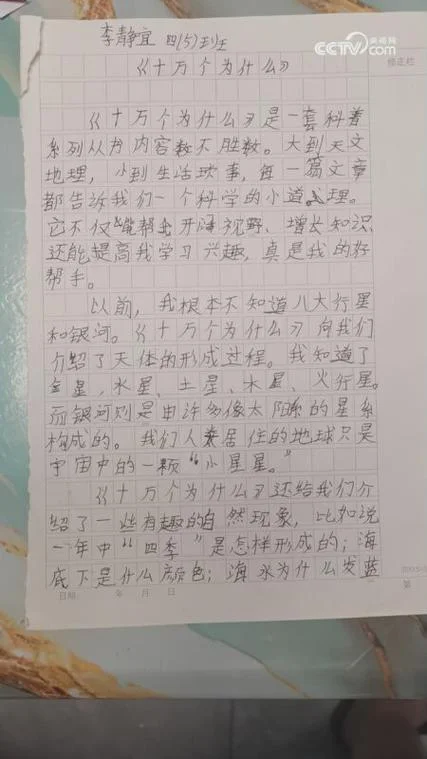 CCTV.com 央视网
李静宜 四(5)班
修正栏
《十万个为什么》
《十万个为什么》是一套科普
系列从书内容数不胜数。大到天文
地理,小到生活琐事,每一篇文章
都告诉我们一个科学的小道理。
它不仅能帮开阔视野、增长知识、
还能提高我学习兴趣,真是我的好
帮手。
以前,我根本不知道八大行星
和银河。《十万个为什么》向我们
介绍了天体的形成过程。我知道了
金星,水星、土星、木星、火行星。
而银河则是由许多像太阳的星系
构成的。我们人类居住的地球只是
宇宙中的一颗“小星星。”
《十万个为什么》还给我们介
绍了一些有趣的自然现象,比如说
一年中“四季”是怎样形成的;海
底下是什么颜色;海水为什么发蓝
日期: 年 月 日
第